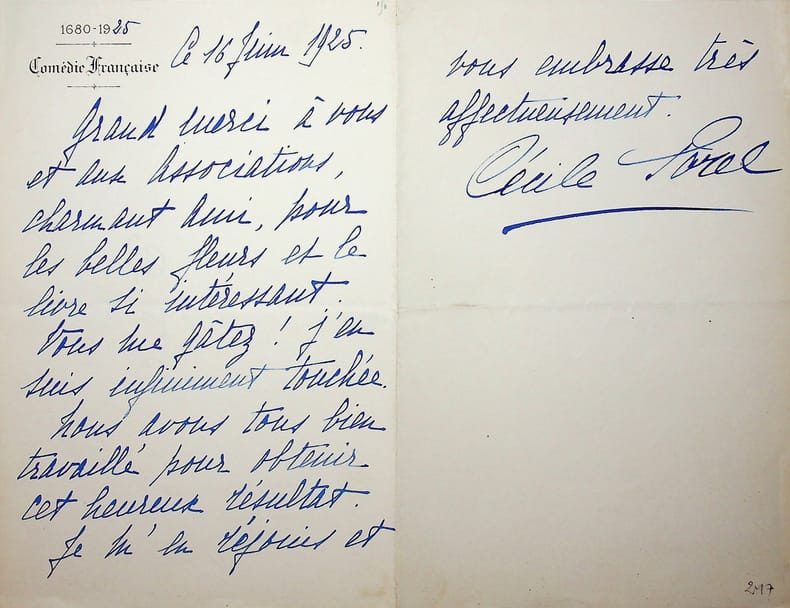 1680-1925
Comédie Française
Ce 16 Juin 1925.
Grand merci à vous
et aux Associations,
charmant ami, pour
les belles fleurs et le
livre si intéressant.
Vous me gâtez ! j'en
suis infiniment touchée.
Nous avons tous bien
travaillé pour obtenir
cet heureux résultat.
Je m'en réjouis et
vous embrasse très
affectueusement.
Cécile Sorel